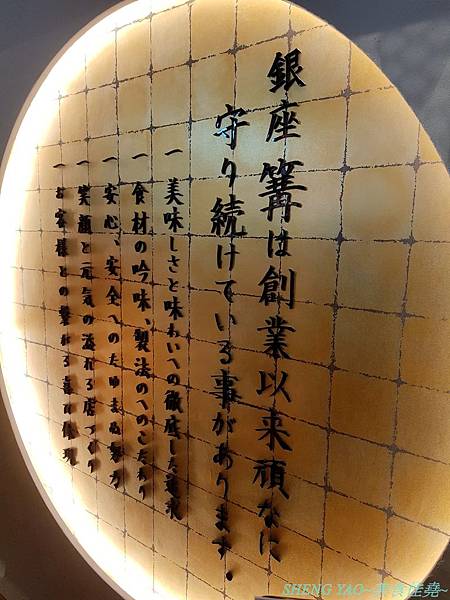 銀座篝は創業以来頑なに
守り続けている事があります。
一 美味しさと味わいへの徹底した追求
一 食材の吟味、製法へのこだわり
一 安心、安全へのたゆまぬ努力
一 笑顔と元気の溢れる店づくり
一 お客様との繋がる喜び
SHENG YAO~